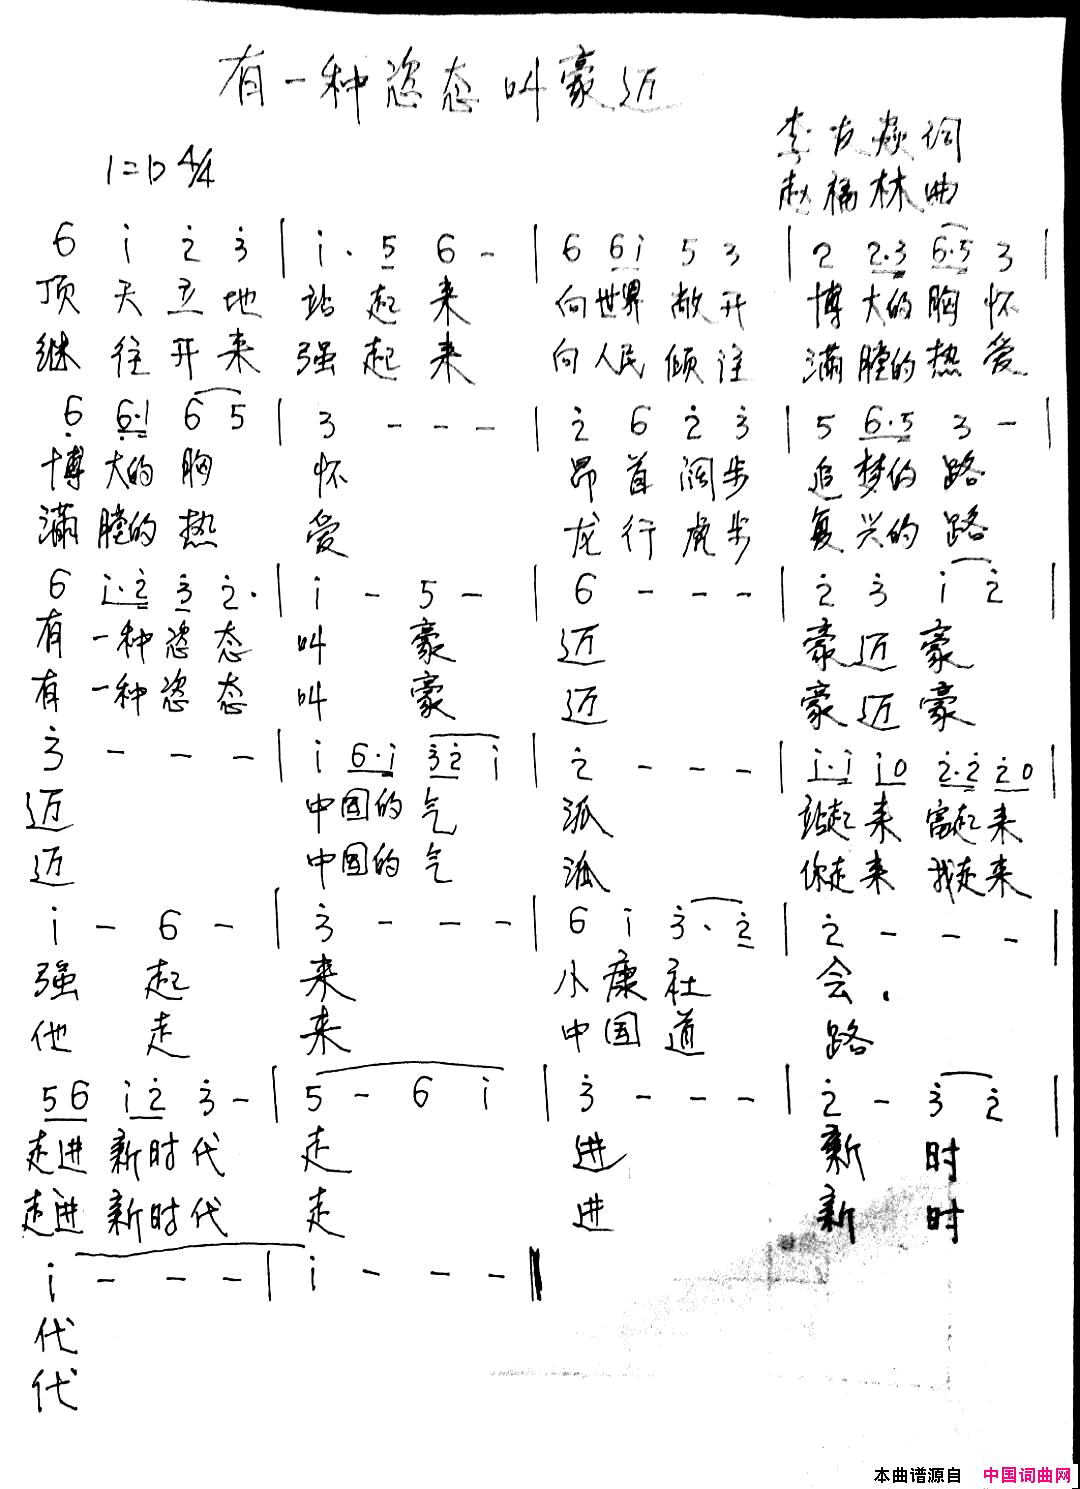 有一种恣态叫豪迈
李友焱词
1=D 4/4
赵福林曲
6 i 2 3 | i · 5 6 - | 6 6i 5 3 | 2 2·3 6·5 3 |
顶天立地 站起来 向世界敞开 博大的胸怀
继往开来 强起来 向人民倾注 满膛的热爱
6 6·1 6 5 | 3 - - - | 2 6 2 3 | 5 6·5 3 - |
博大的胸 怀 昂首阔步 追梦的路
满膛的热 爱 龙行虎步 复兴的路
6 i·2 3 2· | i - 5 - | 6 - - - | 2 3 i 2 |
有一种恣态 叫豪 迈 豪迈豪
有一种恣态 叫豪 迈 豪迈豪
3 - - - | i 6·i 32 i | 2 - - - | i·i i0 2·2 20 |
迈 中国的气 派 站起来 富起来
迈 中国的气 派 你走来 我走来
i - 6 - | 3 - - - | 6 i 3·2 | 2 - - - |
强起 来 小康社 会.
他走 来 中国道 路
56 i2 3- | 5 - 6 i | 3 - - - | 2 - 3 2 |
走进新时代 走 进 新时
走进新时代 走 进 新时
i - - - | i - - - ‖
代
代
本曲谱源自 中国词曲网